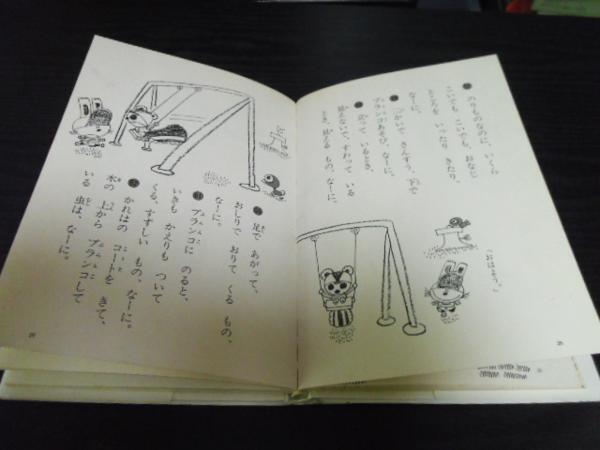 のりものなのに、いくら
こいでも こいでも、おなじ
ところを いったり きたり、
なーに。
さんすう、
ブランコあそび、なーに。
いるとき、
見えないで、すわって いる
とき、見える もの、なーに。
「おはよう。」
足で あがって、
おしりで おりて くる もの、
なーに。
ブランコに のると、
いきも かえりも ついて
くる、すずしい もの、なーに。
かれはの コートを きて、
木の 上から ブランコして
いる 虫は、なーに。